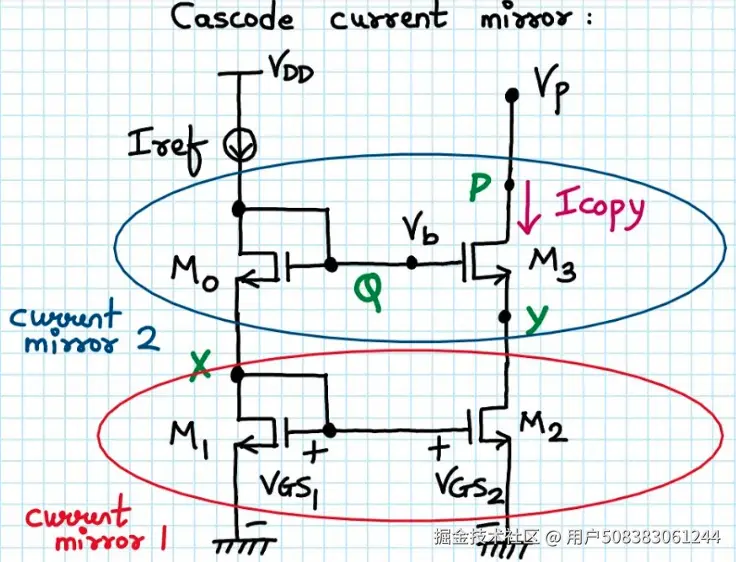 Cascode current mirror:
VDD
Vp
Iref
P
Icopy
Vb
M0
Q
M3
current
mirror 2
Y
X
M1
M2
+
+
VGS1
VGS2
-
-
current
mirror 1
掘金技术社区 @ 用户508383061244